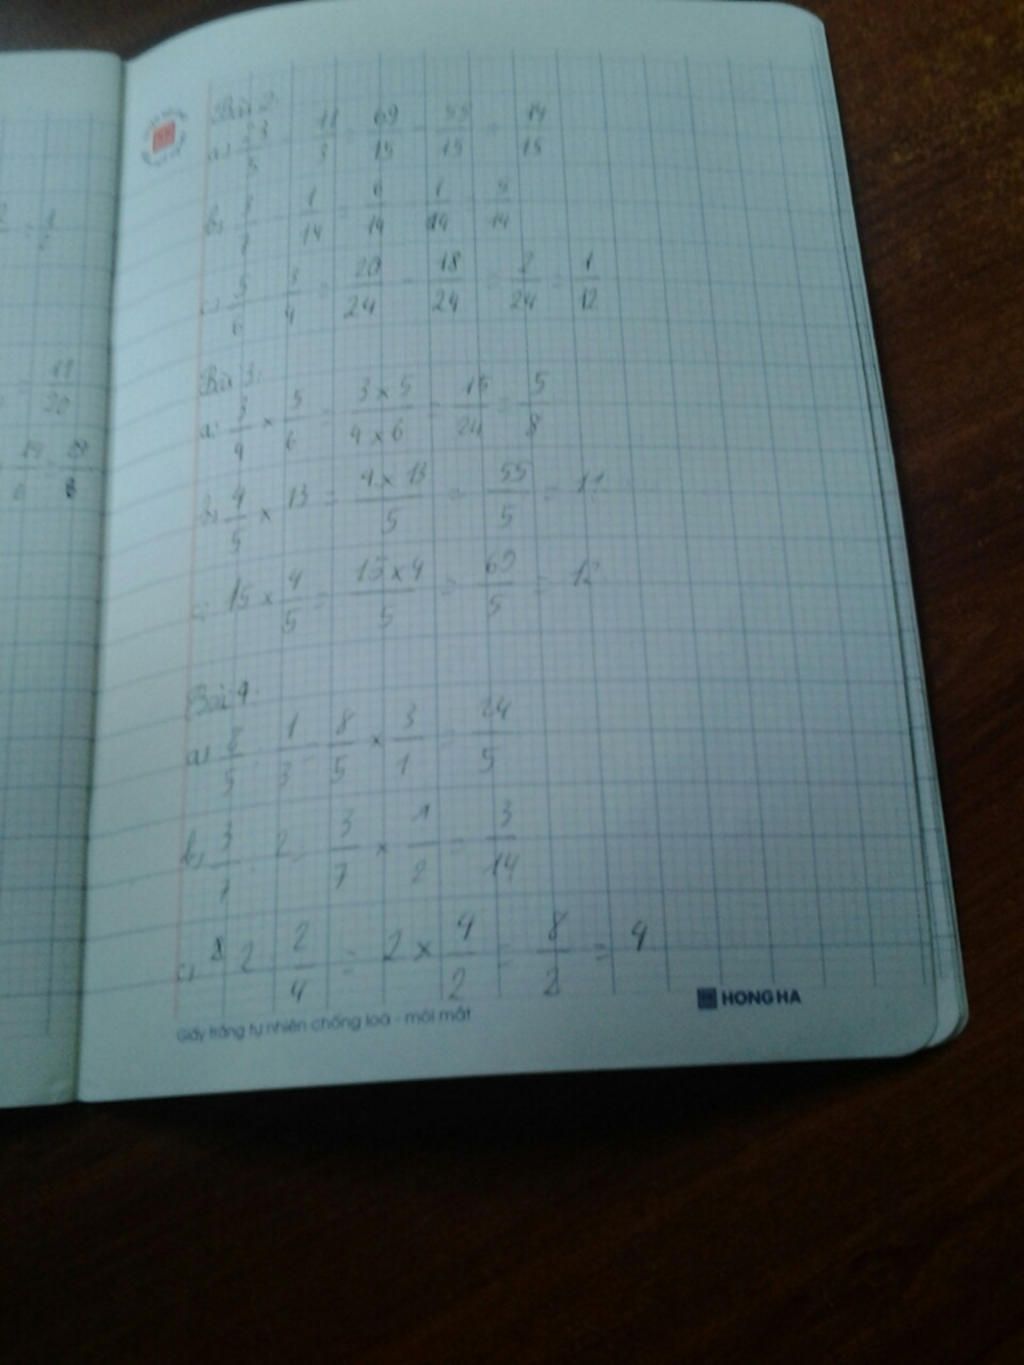 2/ = 1/2
= 11/20
Bài 2:
a) 23/5 - 11/3 = 69/15 - 55/15 = 14/15
b) 3/7 - 1/14 = 6/14 - 1/14 = 5/14
c) 5/6 - 3/4 = 20/24 - 18/24 = 2/24 = 1/12
Bài 3:
a) 3/4 × 5/6 = 3 × 5/4 × 6 = 15/24 = 5/8
b) 4/5 × 13 = 4 × 13/5 = 55/5 = 11
c) 15 × 4/5 = 15 × 4/5 = 60/5 = 12
Bài 4:
a) 8/5 : 1/3 = 8/5 × 3/1 = 24/5
b) 3/7 : 2 = 3/7 × 1/2 = 3/14
c) 2 : 2/4 = 2 × 4/2 = 8/2 = 4
HONG HA
Giấy trắng tự nhiên chống loá - mỏi mắt